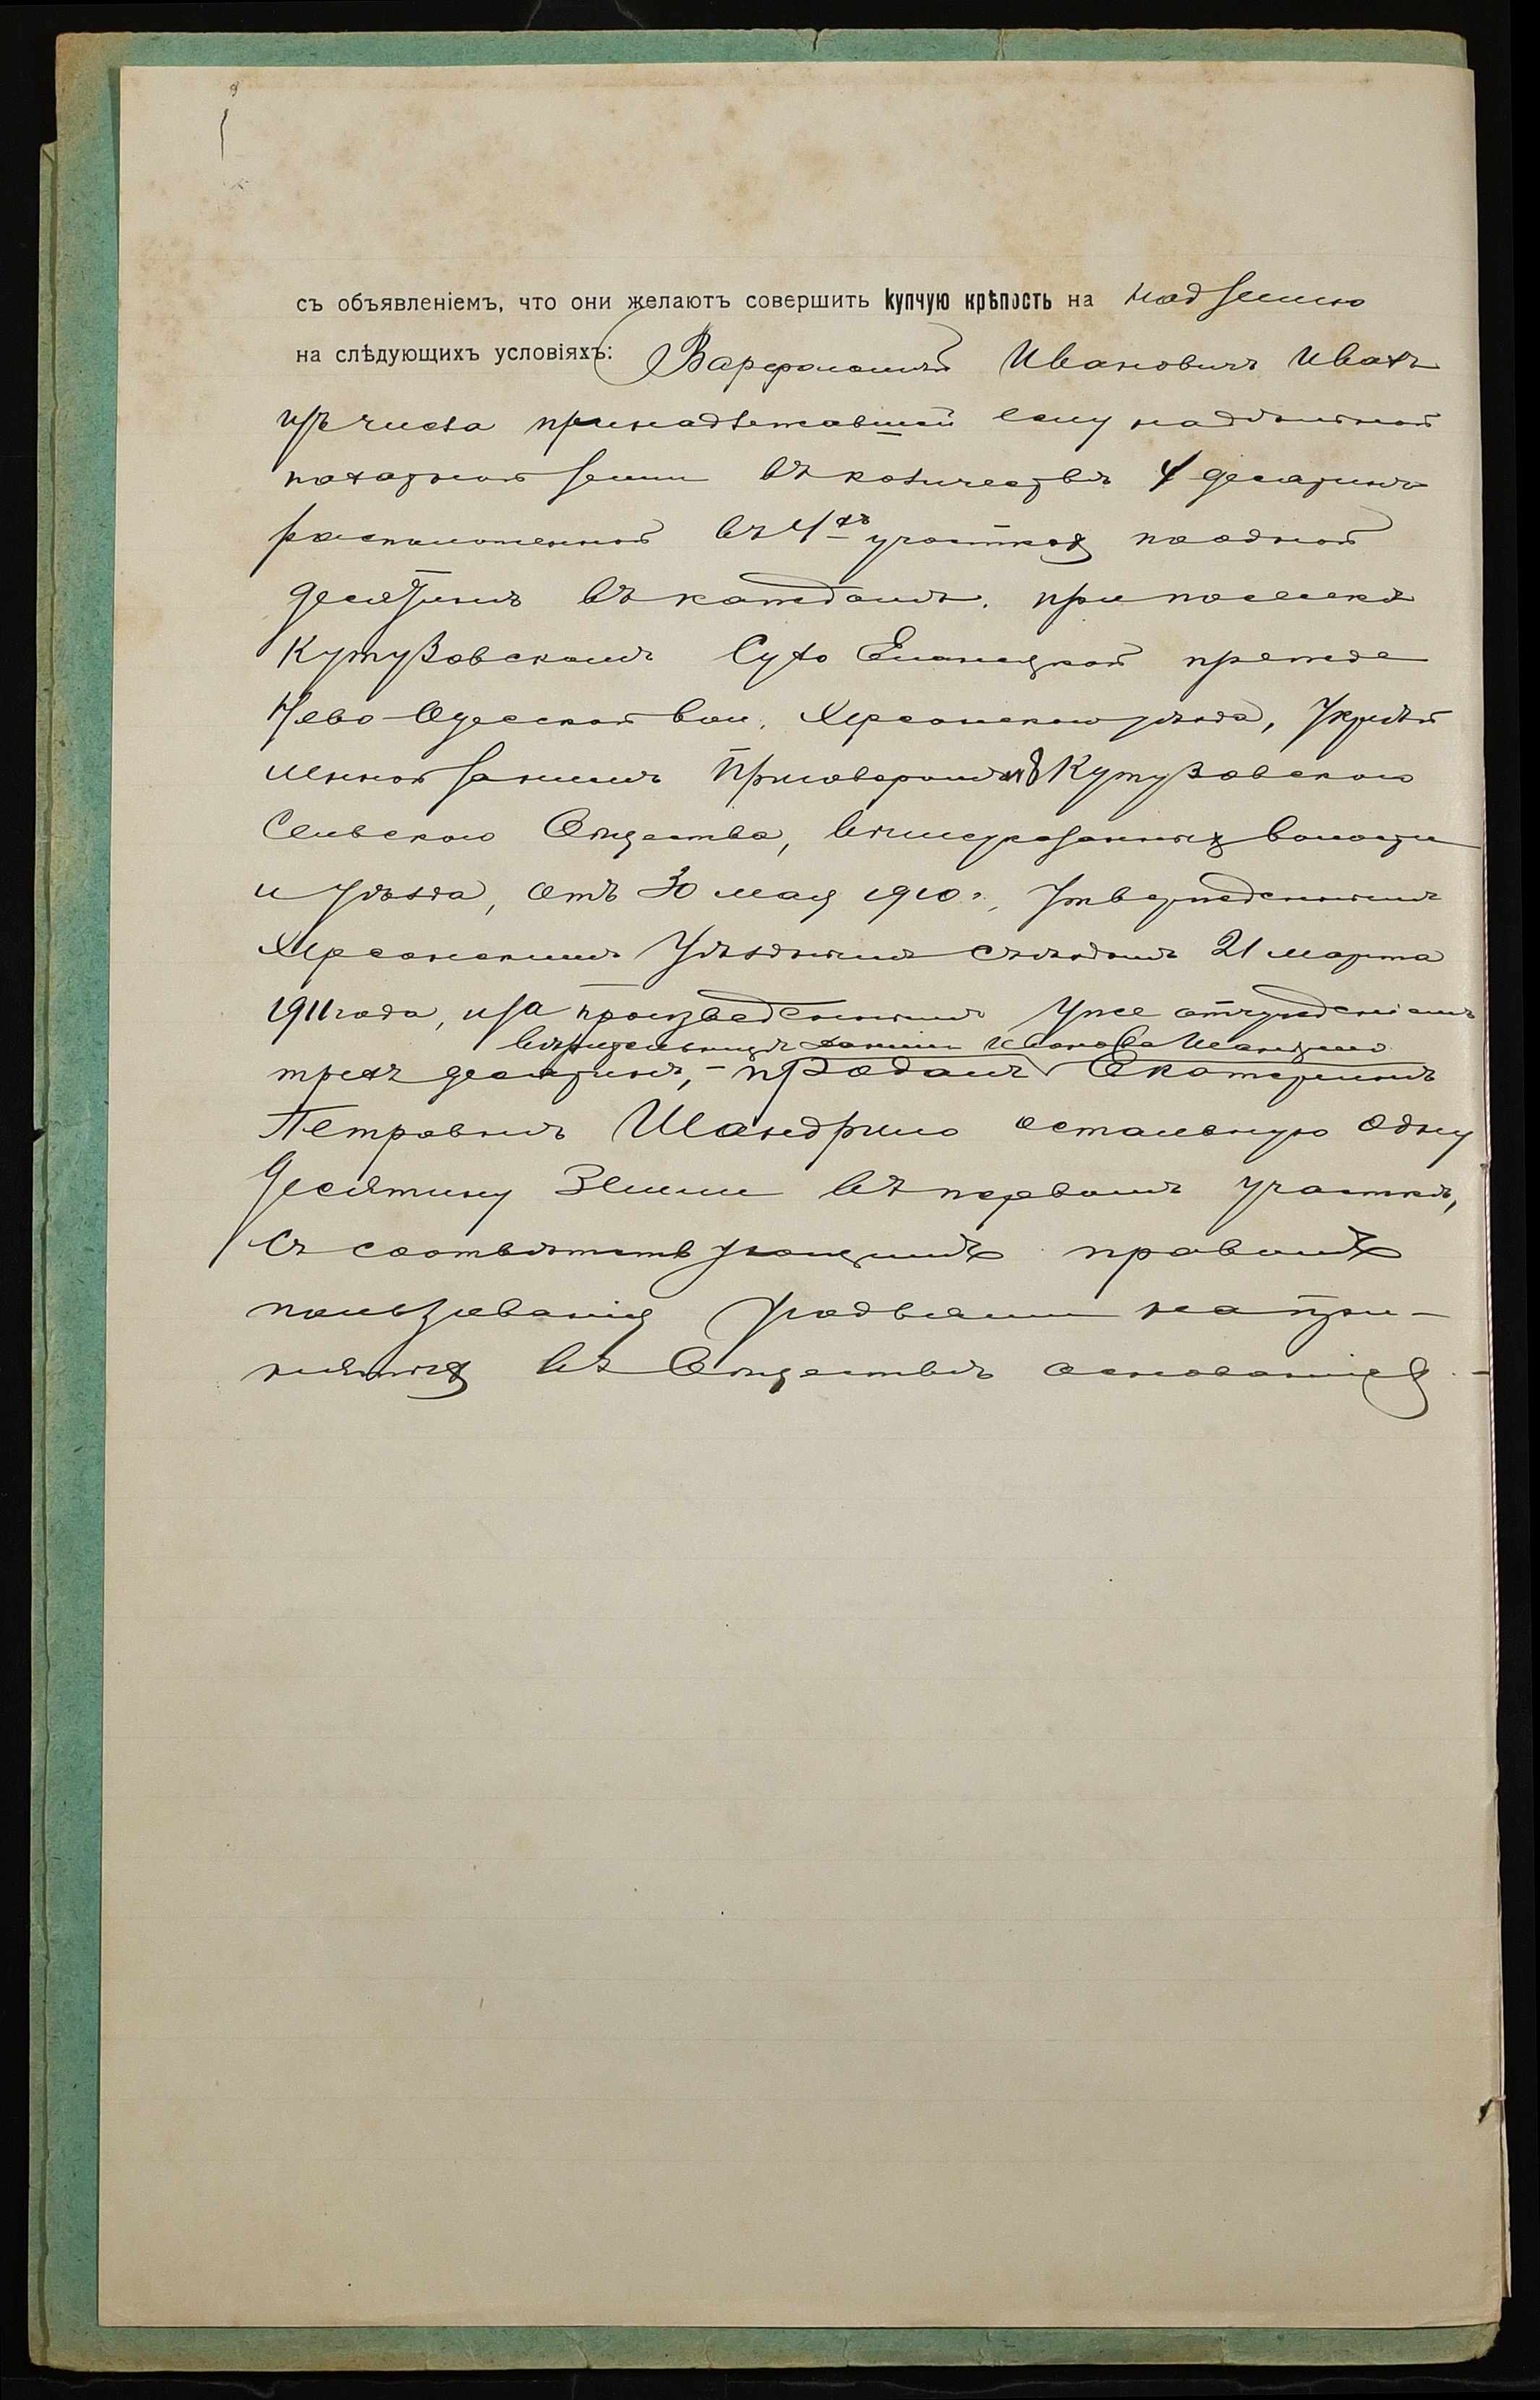 съ объявленіемъ, что они желаютъ совершить купчую крѣпость на надземлю
на слѣдующихъ условіяхъ: Варфоломей Ивановичъ Ивахъ
изъ числа принадлежавшей ему надѣльной
пахатной земли въ количествѣ 4 десятинъ
расположенной въ 4хъ участкахъ по одной
десятинѣ въ каждомъ, при поселкѣ
Кутузовскомъ Сухо Еланецкой прежде
Ново-Одесской вол. Херсонскаго уѣзда, Укрѣп
ленной за нимъ Приговоромъ Кутузовскаго
Сельскаго Общества, вышеуказанныхъ волости
и уѣзда, отъ 30 мая 1910 г., Утвержденнымъ
Херсонскимъ Уѣзднымъ съѣздомъ 21 марта
1911 года, и за произведеннымъ уже отчужденіемъ
Ивановна Шандрило
трехъ десятинъ, – продалъ Екатеринѣ
Петровнѣ Шандрило остальную одну
десятину Земли въ первомъ участкѣ,
съ соотвѣтствующимъ правомъ
пользованія угодьями на при-
нятыхъ въ Обществѣ основаніяхъ. –